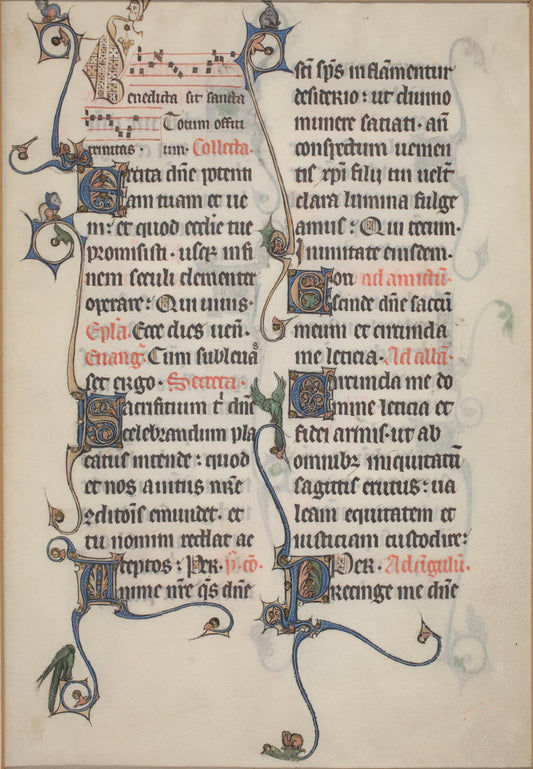 Benedicta sit sancta
Totum offici
trinitas: um. Collecta.
Excita dñe potenti
am tuam et ue
ni: et quod ecclie tue
promisisti. usqz in fi
nem seculi clementer
operare: Qui uiuis.
Epla. Ecce dies ueñ.
Euang. Cum subleuas
set ergo. Secreta.
Sacrificium t̃ dñe
celebrandum pla
catus intende: quod
et nos a uitiis nr̃e
ↄditoĩs emundet. et
tuo nomini reddat ac
ceptos: Per. p̃. cõ.
Anime nr̃e q̃s dñe
sc̃i sp̃s inflãmentur
desiderio: ut diuino
munere satiati. añ
conspectum uenien
tis xp̃i filii tui uelt̃
clara lumina fulge
amus: Qui tecum.
in unitate eiusdem.
ad amictũ.
Scinde dñe saccũ
meum et circunda
me leticia. Ad albã.
Circunda me do
mine leticia et
fidei armis. ut ab
omnibz iniquitatũ
sagittis erutus: ua
leam equitatem et
iusticiam custodire:
Per. Ad cĩgulũ.
Precinge me dñe